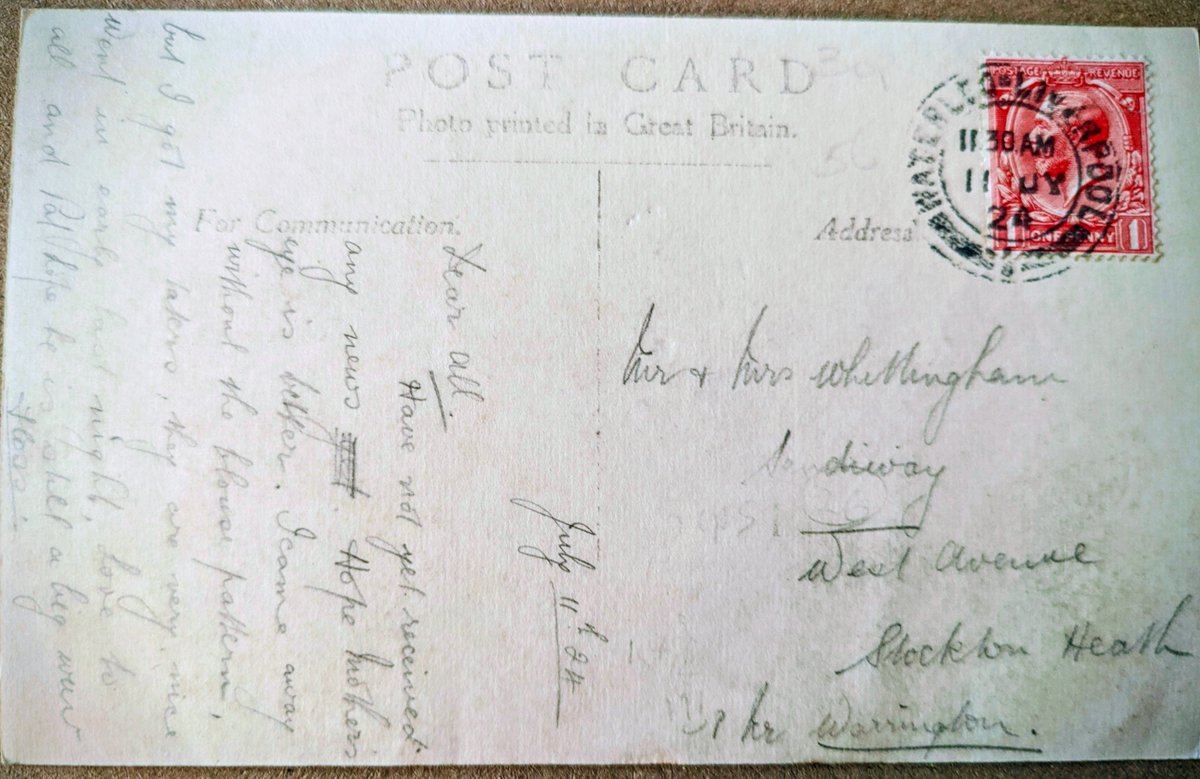 POST CARD
Photo printed in Great Britain.
For Communication.
Address
WATERLOO · LIVERPOOL
11 30 AM
11 JY
24
POSTAGE REVENUE
ONE PENNY 1
July 11th 24
Dear All.
Have not yet received
any news Hope Mothers
eye is better. I came away
without the blouse pattern,
but I got my takers, they are very nice
Went in early last night, love to
all and Pat hope he is a
Mr & Mrs Whittingham
Sandiway
West Avenue
Stockton Heath
Nr Warrington.